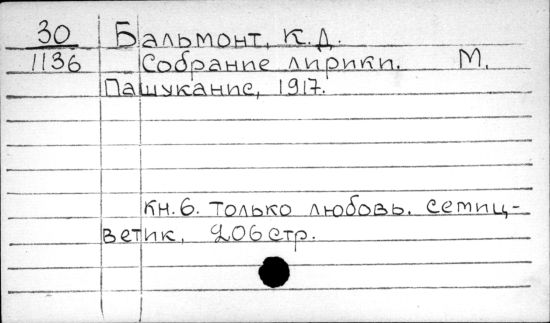 30 Бальмонт, К.Д.
1136 Собрание лирики. М.
Пашуканис, 1917.
кн.6. Только любовь. Семиц-
ветик. 206 стр.